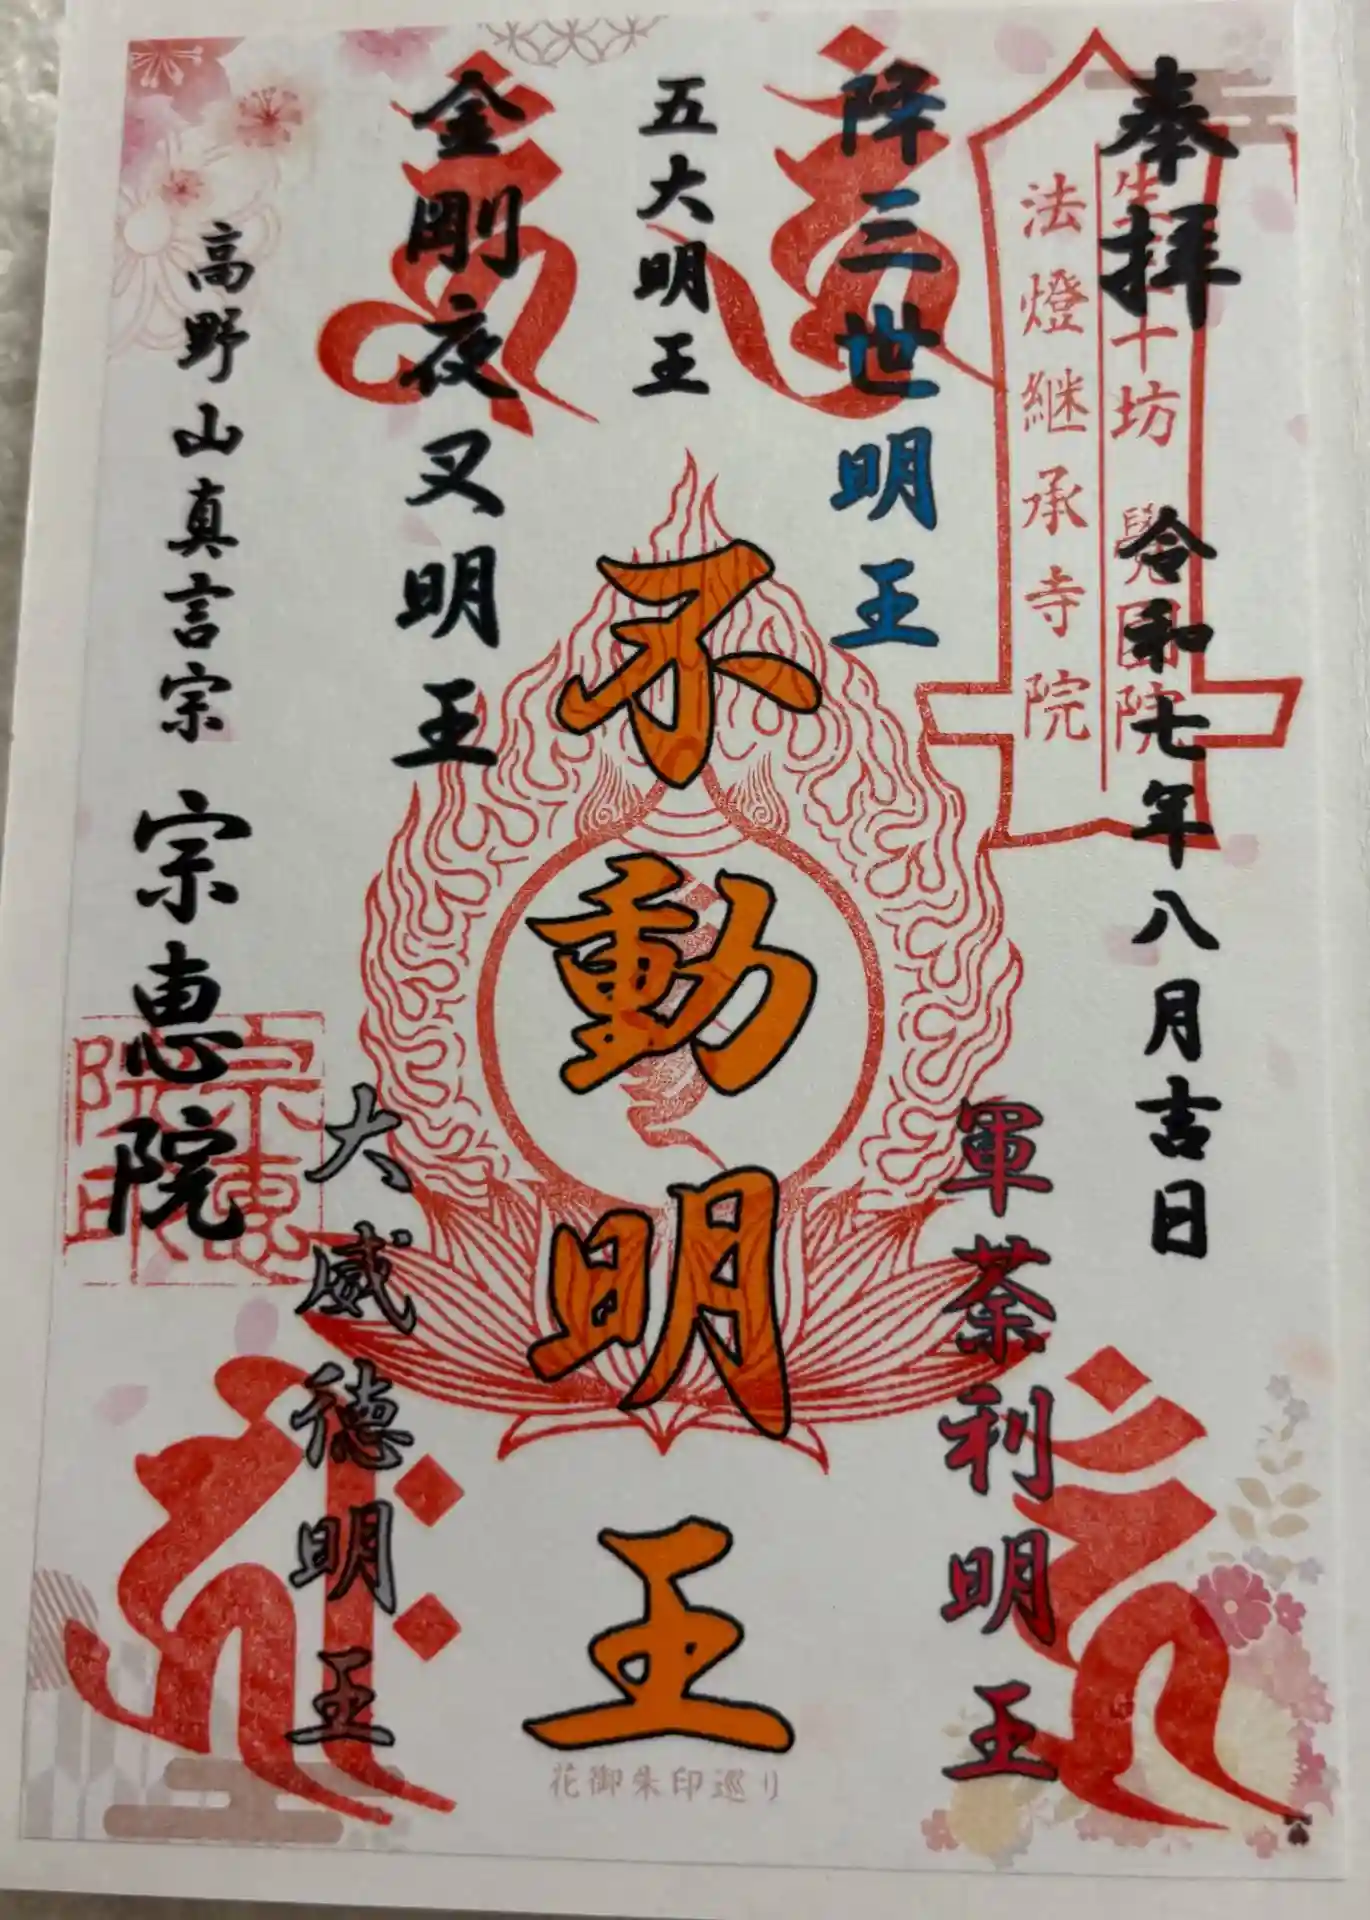 奉拝
令和七年八月吉日
法燈継承寺院
降三世明王
軍荼利明王
五大明王
不動明王
花御朱印巡り
金剛夜叉明王
大威徳明王
高野山真言宗 宗恵院
宗恵
院印